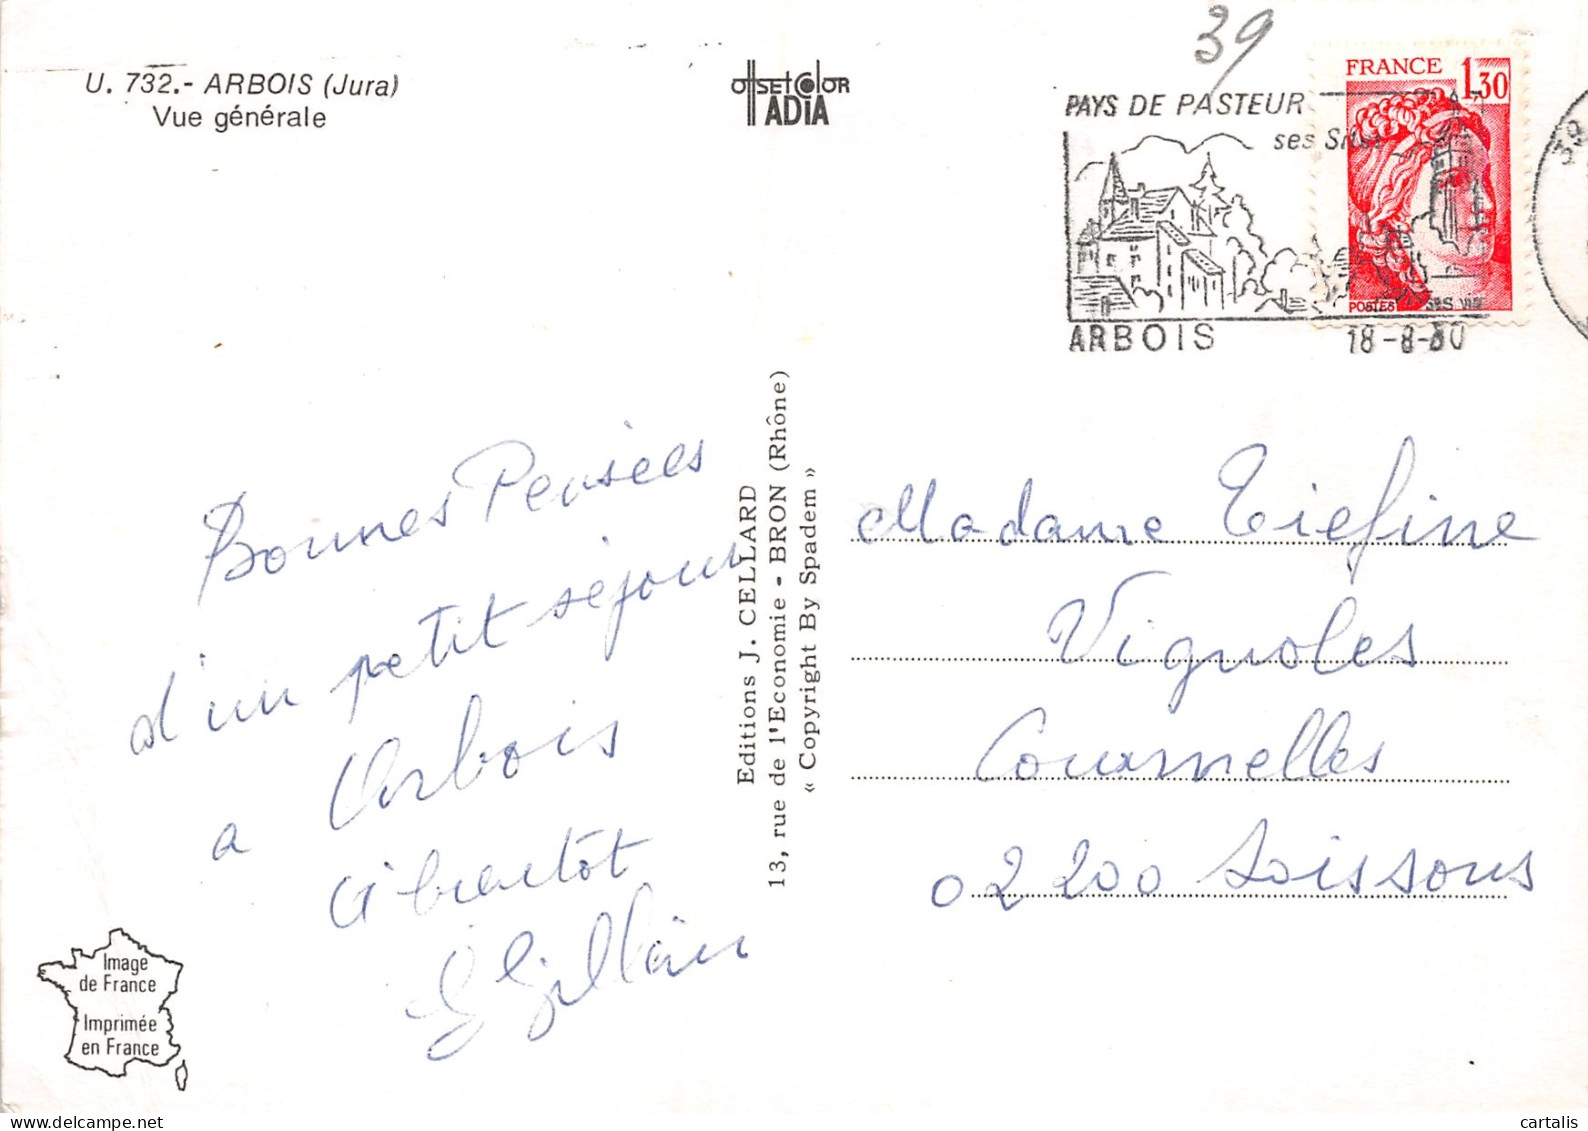 U. 732.- ARBOIS (Jura)
Vue générale
OffSEtColOR
ADIA
39
FRANCE 1,30
POSTES
PAYS DE PASTEUR
ses Sites
ARBOIS
18-8-80
39
Bonnes Pensées
d'un petit séjour
a Arbois
à bientôt
Editions J. CELLARD
13, rue de l'Economie - BRON (Rhône)
« Copyright By Spadem »
Madame Tiefine
Vignoles
Courmelles
02200 Soissons
Image
de France
Imprimée
en France
cartalis
delcampe.net